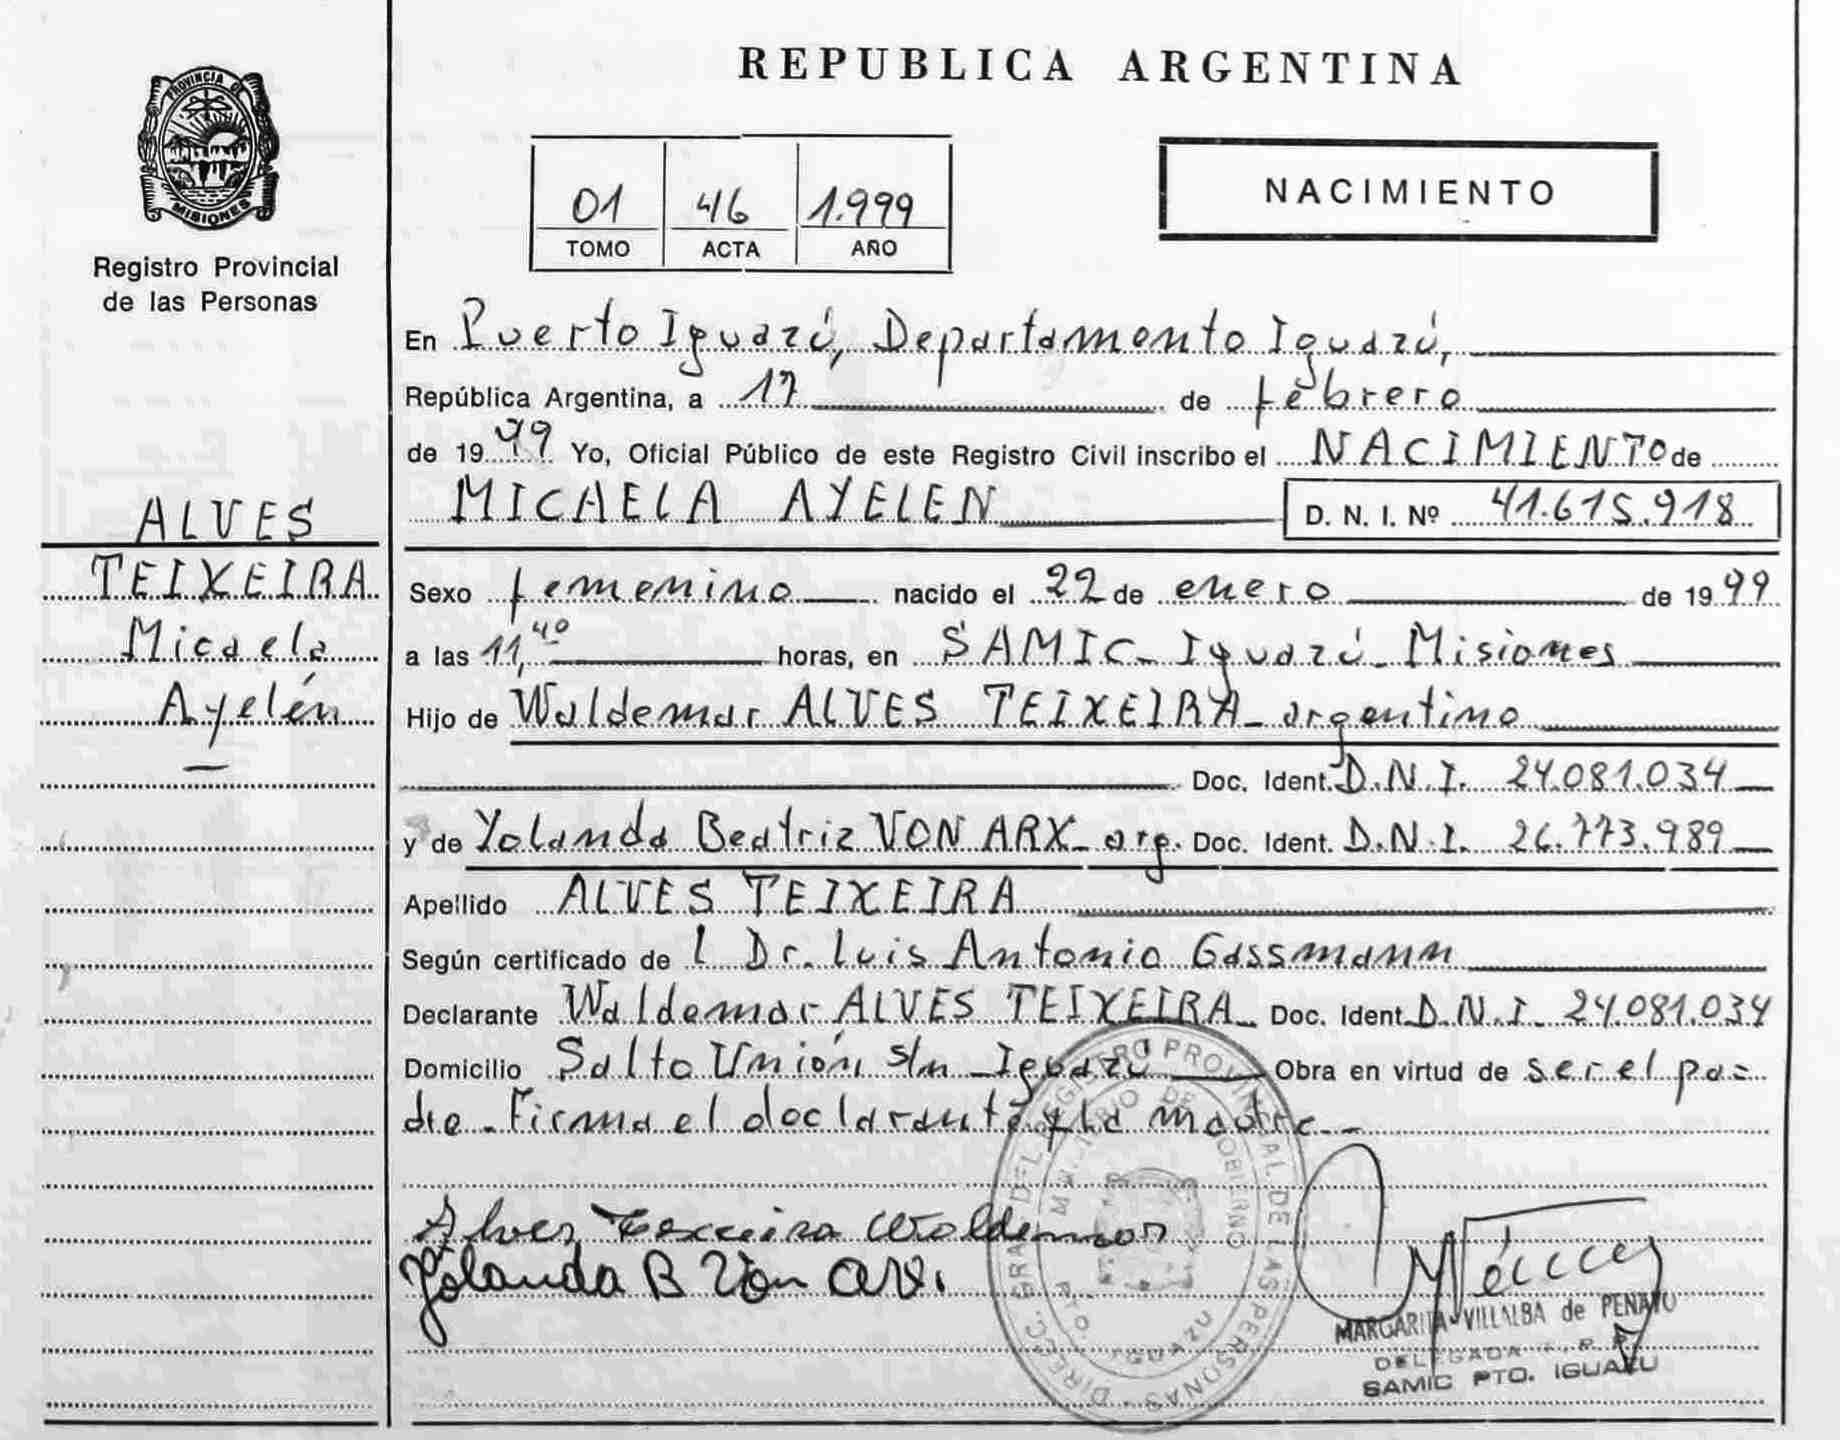 REPUBLICA ARGENTINA
PROVINCIA DE
MISIONES
Registro Provincial
de las Personas
01 46 1.999
TOMO ACTA AÑO
NACIMIENTO
En Puerto Iguazú, Departamento Iguazú,
República Argentina, a 17 de febrero
de 1999 Yo, Oficial Público de este Registro Civil inscribo el NACIMIENTO de
MICAELA AYELEN D. N. I. Nº 41.615.918
ALVES
TEIXEIRA
Micaela
Ayelén
Sexo femenino nacido el 22 de enero de 1999
a las 11,40 horas, en SAMIC - Iguazú - Misiones
Hijo de Waldemar ALVES TEIXEIRA - argentino
Doc. Ident. D.N.I. 24.081.034
y de Yolanda Beatriz VON ARX - arg. Doc. Ident. D.N.I. 26.773.989
Apellido ALVES TEIXEIRA
Según certificado de l Dr. Luis Antonio Gassmann
Declarante Waldemar ALVES TEIXEIRA - Doc. Ident. D.N.I. 24.081.034
Domicilio Salto Unión s/n - Iguazú Obra en virtud de ser el pa=
dre - Firma el declarante y la madre -
Alves Teixeira Waldemar
Yolanda B Von Arx.
DIREC. GRAL. DEL REGISTRO PROVINCIAL DE LAS PERSONAS
MINISTERIO DE GOBIERNO
PTO. IGUAZU
MARGARITA VILLALBA de PENAYO
DELEGADA
SAMIC PTO. IGUAZU